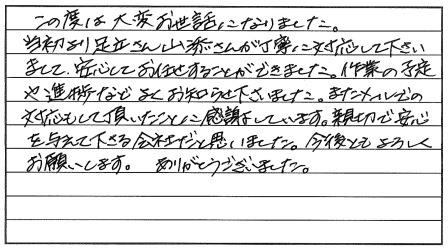 この度は大変お世話になりました。
当初より足立さん山添さんが丁寧に対応して下さい
まして、安心してお任せすることができました。作業の予定
や進捗などよくお知らせ下さいました。またメールでの
対応もして頂いたことに感謝しています。親切で安心
を与えて下さる会社だと思いました。今後ともよろしく
お願いします。 ありがとうございました。